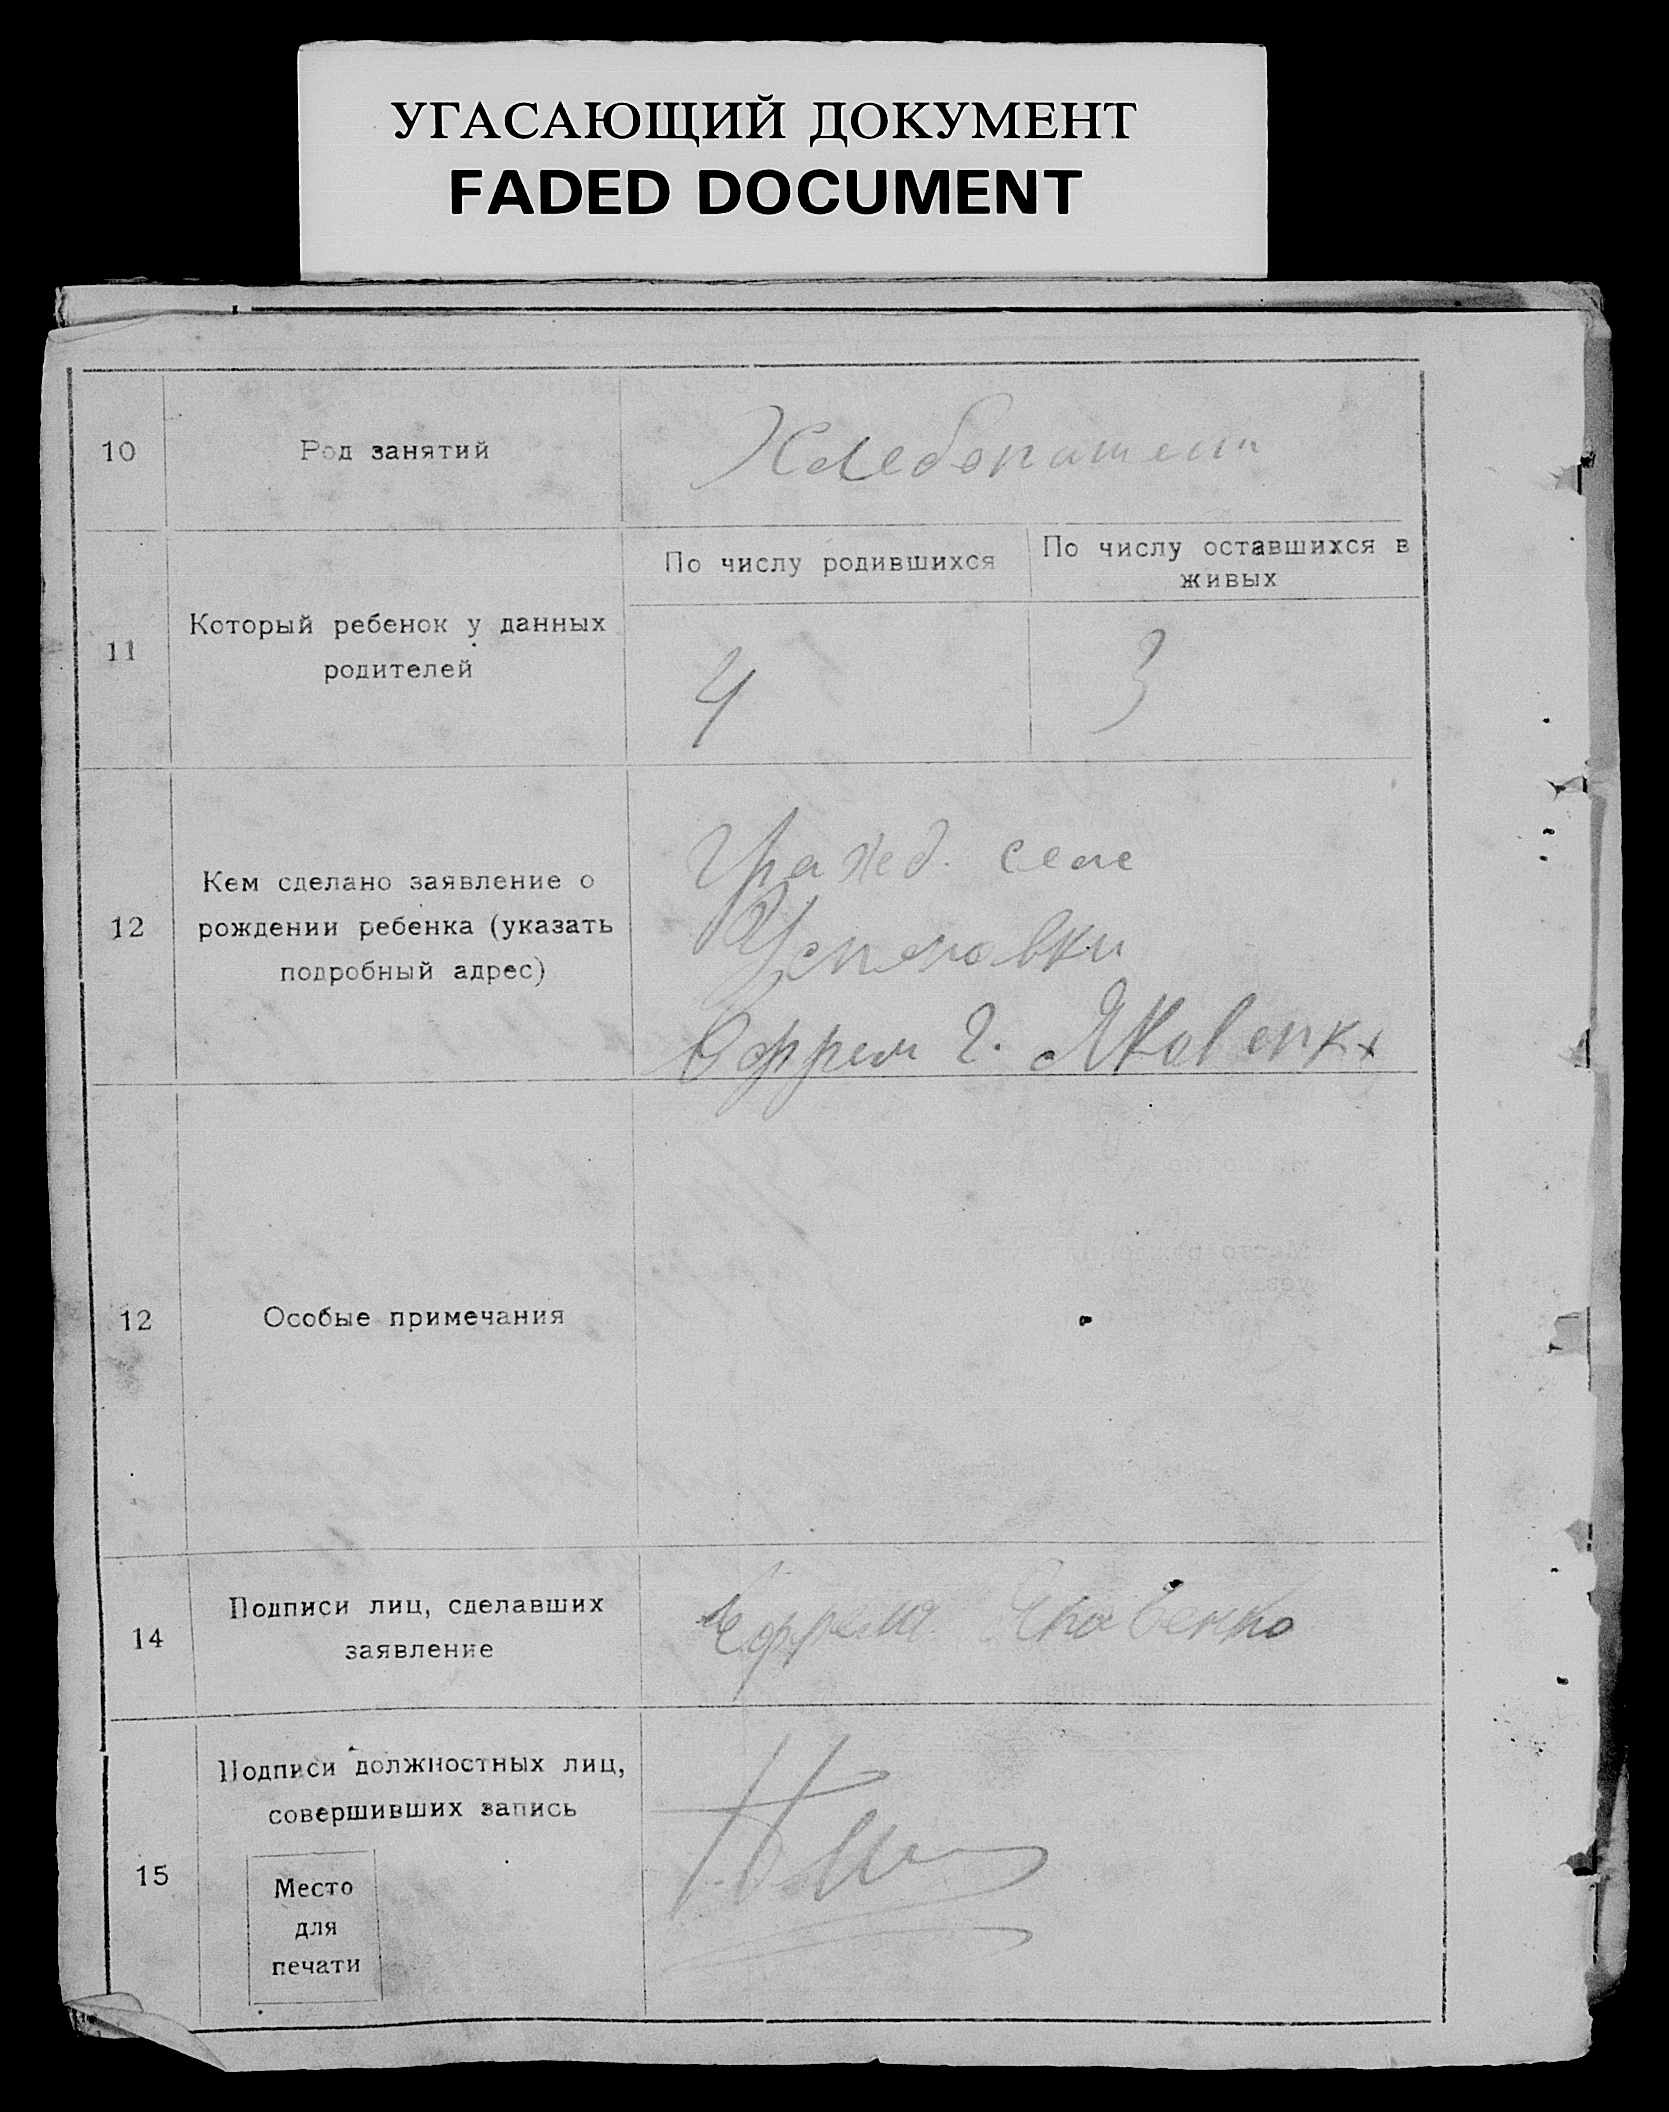 УГАСАЮЩИЙ ДОКУМЕНТ
FADED DOCUMENT
10
Род занятий
Хлебопашец
11
Который ребенок у данных
родителей
По числу родившихся
По числу оставшихся в
живых
4
3
12
Кем сделано заявление о
рождении ребенка (указать
подробный адрес)
Гражд. села
Ефрем Г. Яковенко
12
Особые примечания
14
Подписи лиц, сделавших
заявление
Ефрем Яковенко
15
Подписи должностных лиц,
совершивших запись
Место
для
печати